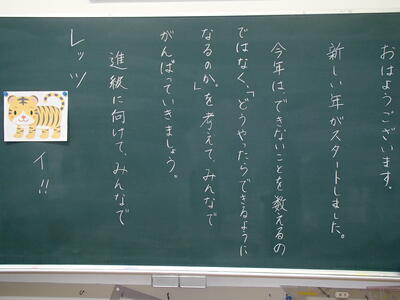 おはようございます。
新しい年がスタートしました。
今年はできないことを数えるの
ではなく、「どうやったらできるように
なるのか。」を考えて、みんなで
がんばっていきましょう。
進級に向けて、みんなで
レッツ
イ!!